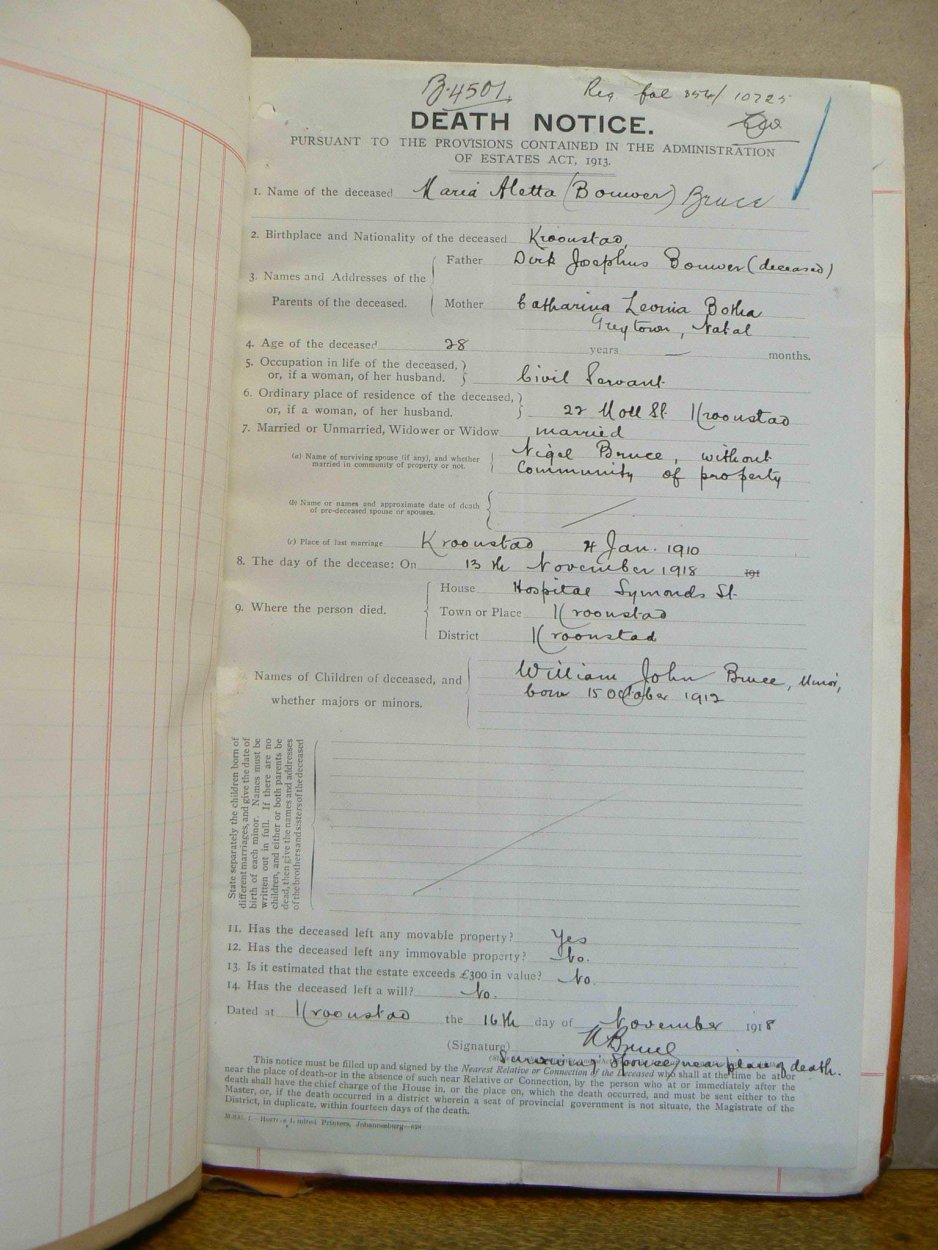 B.4501.
Reg fol 356/ 10725
DEATH NOTICE.
PURSUANT TO THE PROVISIONS CONTAINED IN THE ADMINISTRATION
OF ESTATES ACT, 1913.
1. Name of the deceased Maria Aletta (Bouwer) Bruce
2. Birthplace and Nationality of the deceased Kroonstad,
3. Names and Addresses of the Parents of the deceased.
Father Dirk Josephus Bouwer (deceased)
Mother Catharina Leonia Botha
Greytown, Natal
4. Age of the deceased 28 years — months.
5. Occupation in life of the deceased,
or, if a woman, of her husband. Civil Servant
6. Ordinary place of residence of the deceased,
or, if a woman, of her husband. 22 Moll St Kroonstad
7. Married or Unmarried, Widower or Widow married
(a) Name of surviving spouse (if any), and whether Nigel Bruce, without
married in community of property or not. Community of property
(b) Name or names and approximate date of death
of pre-deceased spouse or spouses.
(c) Place of last marriage Kroonstad 4 Jan. 1910
8. The day of the decease: On 13th November 1918 191
9. Where the person died.
House Hospital Symonds St
Town or Place Kroonstad
District Kroonstad
Names of Children of deceased, and William John Bruce, Minor,
whether majors or minors. born 15 October 1912
State separately the children born of
different marriages, and give the date of
birth of each minor. Names must be
written out in full. If there are no
children, and either or both parents be
dead, then give the names and addresses
of the brothers and sisters of the deceased
11. Has the deceased left any movable property? Yes
12. Has the deceased left any immovable property? No.
13. Is it estimated that the estate exceeds £300 in value? No.
14. Has the deceased left a will? No.
Dated at Kroonstad the 16th day of November 1918
(Signature) N Bruce
Surviving Spouse near place of death.
This notice must be filled up and signed by the Nearest Relative or Connection of the Deceased who shall at the time be at or
near the place of death—or in the absence of such near Relative or Connection, by the person who at or immediately after the
death shall have the chief charge of the House in, or the place on, which the death occurred, and must be sent either to the
Master, or, if the death occurred in a district wherein a seat of provincial government is not situate, the Magistrate of the
District, in duplicate, within fourteen days of the death.
Printers, Johannesburg